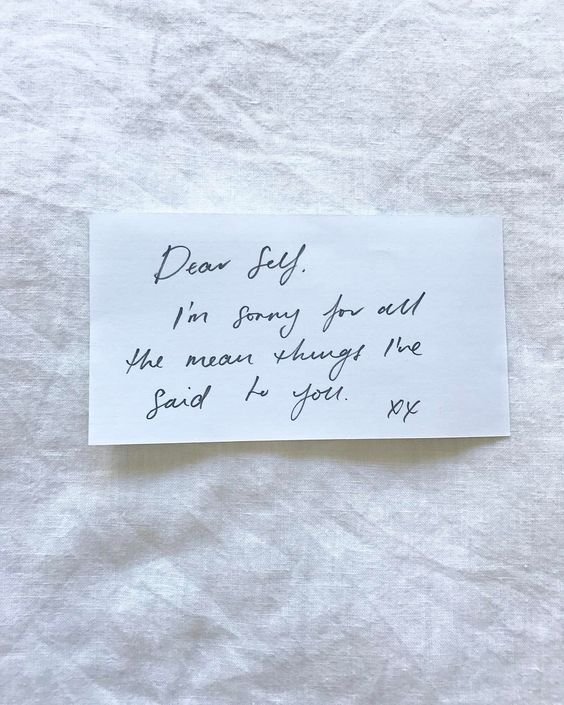 Dear Self.
I'm sorry for all
the mean things I've
said to you. xx